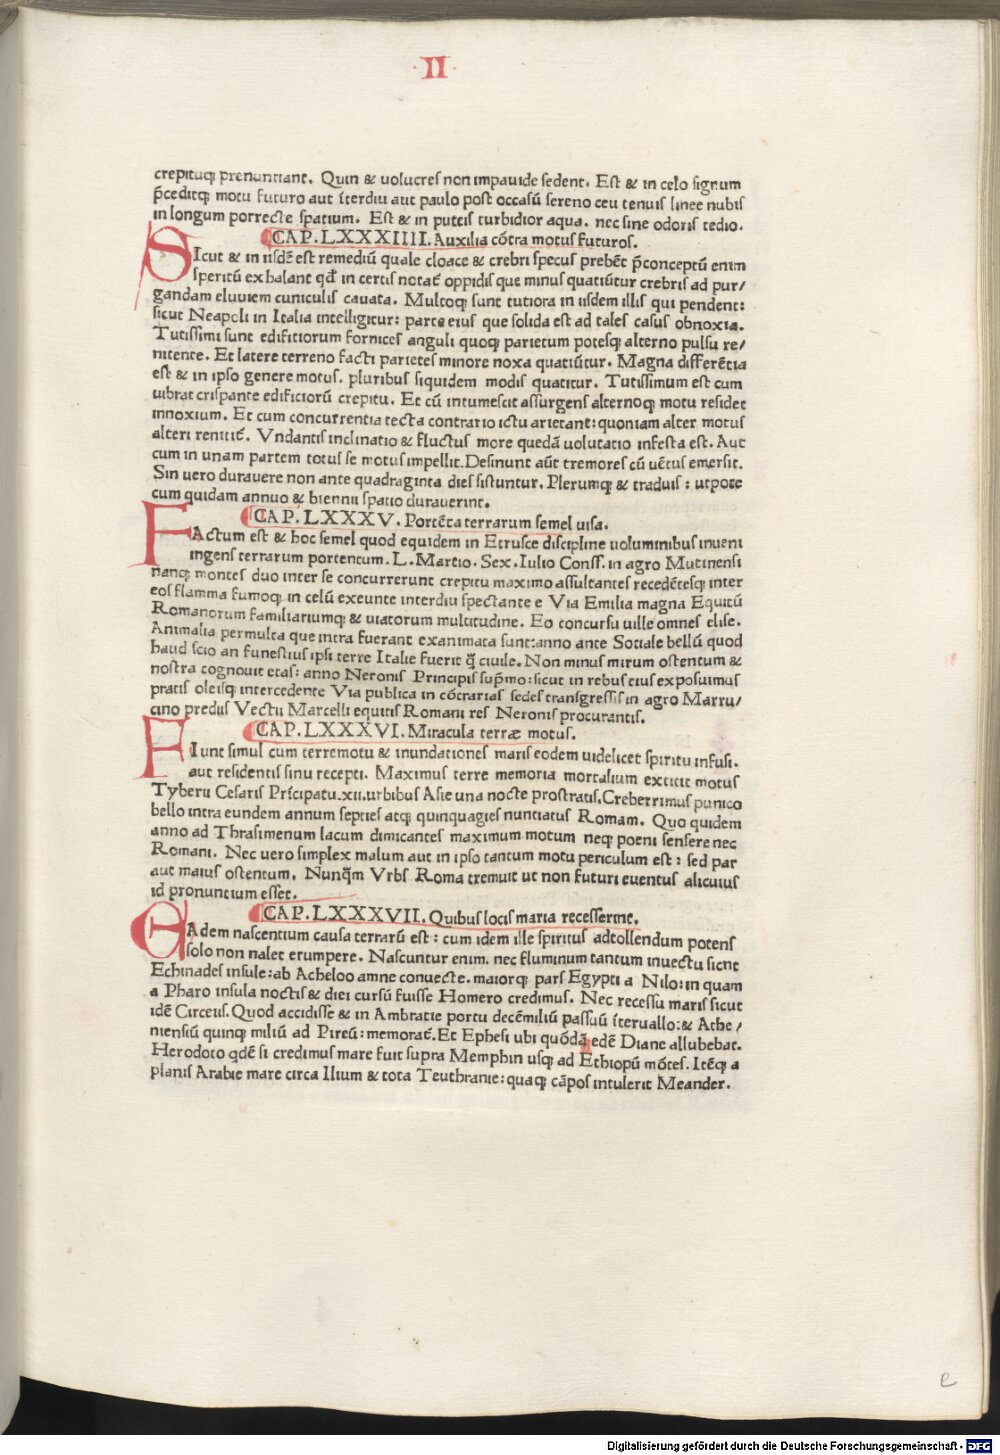 ·II·
crepituq̃ prenuntiant. Quin & uolucres non impauide sedent. Est & in celo signum
p̄ceditq̃ motu futuro aut īterdiu aut paulo post occasū sereno ceu tenuis linee nubis
in longum porrecte spatium. Est & in puteis turbidior aqua. nec sine odoris tedio.
CAP. LXXXIIII. Auxilia cōtra motus futuros.
SIcut & in iisdē est remediū quale cloace & crebri specus prebēt p̄conceptū enim
speritū exhalant qđ in certis notat̄ oppidis que minus quatiūtur crebris ad pur/
gandam eluuiem cuniculis cauata. Multoq̃ sunt tutiora in iisdem illis qui pendent:
sicut Neapoli in Italia intelligitur: parte eius que solida est ad tales casus obnoxia.
Tutissimi sunt edifitiorum fornices anguli quoq̃ parietum potesq̃ alterno pulsu re/
nitente. Et latere terreno facti parietes minore noxa quatiūtur. Magna differētia
est & in ipso genere motus. pluribus siquidem modis quatitur. Tutissimum est cum
uibrat crispante edificiorū crepitu. Et cū intumescit assurgens alternoq̃ motu residet
innoxium. Et cum concurrentia tecta contrario ictu arietant: quoniam alter motus
alteri renitit̄. Vndantis inclinatio & fluctus more quedā uolutatio infesta est. Aut
cum in unam partem totus se motus impellit. Desinunt aūt tremores cū uētus emersit.
Sin uero durauere non ante quadraginta dies sistuntur. Plerumq̃ & traduis: utpote
cum quidam annuo & biennii spatio durauerint.
CAP. LXXXV. Portēta terrarum semel uisa.
FActum est & hoc semel quod equidem in Etrusce discipline uoluminibus inueni
ingens terrarum portentum. L. Martio. Sex. Iulio Conss. in agro Mutinensi
nanq̃ montes duo inter se concurrerunt crepitu maximo assultantes recedētesq̃ inter
eos flamma fumoq̃ in celū exeunte interdiu spectante e Via Emilia magna Equitū
Romanorum familiariumq̃ & uiatorum multitudine. Eo concursu uille omnes elise.
Animalia permulta que intra fuerant exanimata sunt: anno ante Sotiale bellū quod
haud scio an funestius ipsi terre Italie fuerit q̄ ciuile. Non minus mirum ostentum &
nostra cognouit etas: anno Neronis Principis sup̄mo: sicut in rebus eius exposuimus
pratis oleisq̃ intercedente Via publica in cōtrarias sedes transgressis in agro Marru/
cino prediis Vectii Marcelli equitis Romani res Neronis procurantis.
CAP. LXXXVI. Miracula terræ motus.
FIunt simul cum terremotu & inundationes maris eodem uidelicet spiritu infusi.
aut residentis sinu recepti. Maximus terre memoria mortalium extitit motus
Tyberii Cesaris Prīcipatu. xii. urbibus Asie una nocte prostratis. Creberrimus punico
bello intra eundem annum septies atq̃ quinquagies nuntiatus Romam. Quo quidem
anno ad Thrasimenum lacum dimicantes maximum motum neq̃ poeni sensere nec
Romani. Nec uero simplex malum aut in ipso tantum motu periculum est: sed par
aut maius ostentum. Nunq̄m Vrbs Roma tremuit ut non futuri euentus alicuius
id pronuntium esset.
CAP. LXXXVII. Quibus locis maria recesserint.
EAdem nascentium causa terrarū est: cum idem ille spiritus adtollendum potens
solo non nalet erumpere. Nascuntur enim. nec fluminum tantum inuectu sicut
Echinades insule: ab Acheloo amne conuecte. maiorq̃ pars Egypti a Nilo: in quam
a Pharo insula noctis & diei cursū fuisse Homero credimus. Nec recessu maris sicut
idē Circeiis. Quod accidisse & in Ambratie portu decēmiliū passuū īteruallo: & Athe/
niensiū quinq̃ miliū ad Pireū: memorat̄. Et Ephesi ubi quōdā edē Diane allubebat.
Herodoto qdē si credimus mare fuit supra Memphin usq̃ ad Ethiopū mōtes. Itēq̃ a
planis Arabie mare circa Ilium & tota Teuthranie: quaq̃ cāpos intulerit Meander.
e
Digitalisierung gefördert durch die Deutsche Forschungsgemeinschaft - DFG